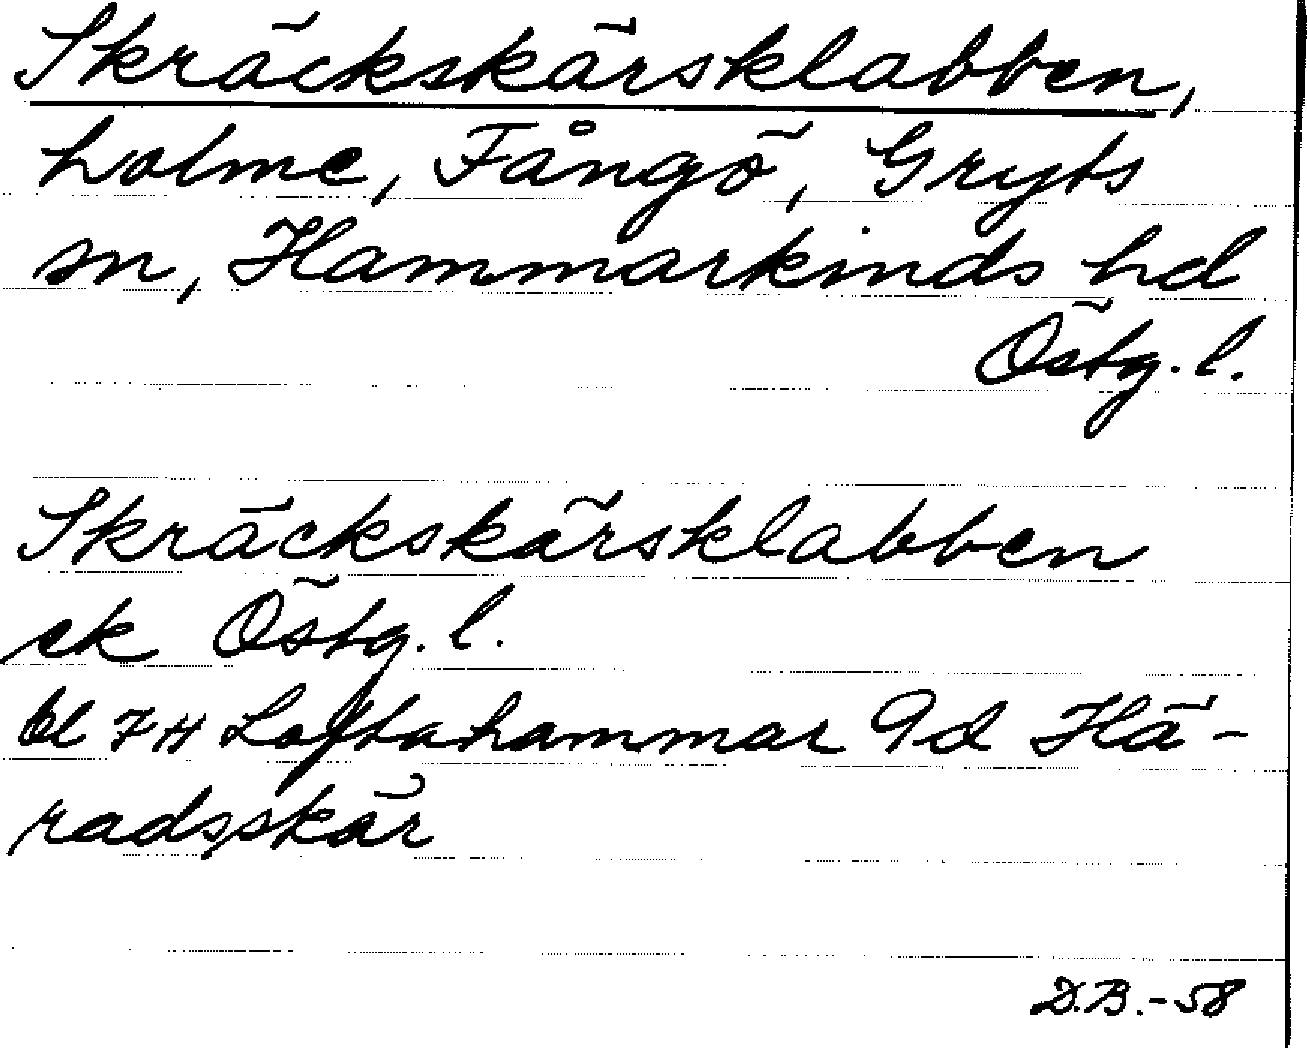 Skräckskärsklabben,
holme, Fångö, Gryts
sn, Hammarkinds hd
Östg. l.
Skräckskärsklabben
ek Östg. l.
bl 7H Loftahammar 9d Hä-
radsskär
D.B.-58